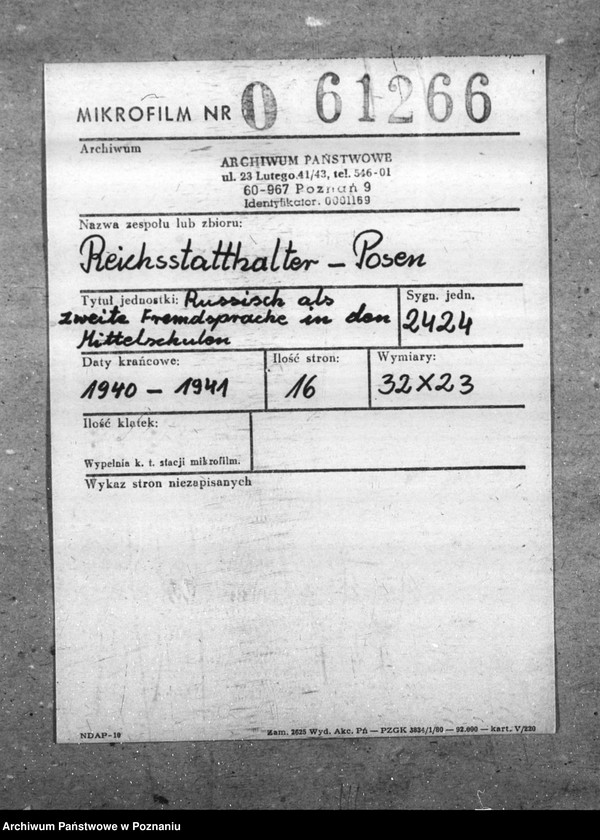 MIKROFILM NR 0 61266
Archiwum
ARCHIWUM PAŃSTWOWE
ul. 23 Lutego 41/43, tel. 546-01
60-967 Poznań 9
Identyfikator. 0001169
Nazwa zespołu lub zbioru:
Reichsstatthalter – Posen
Tytuł jednostki: Russisch als
zweite Fremdsprache in den
Mittelschulen
Sygn. jedn.
2424
Daty krańcowe:
1940 – 1941
Ilość stron:
16
Wymiary:
32x23
Ilość klatek:
Wypełnia k. t. stacji mikrofilm.
Wykaz stron niezapisanych
NDAP-10
Zam. 2625 Wyd. Akc. Pń — PZGK 3834/1/80 — 92.000 — kart. V/220
Archiwum Państwowe w Poznaniu